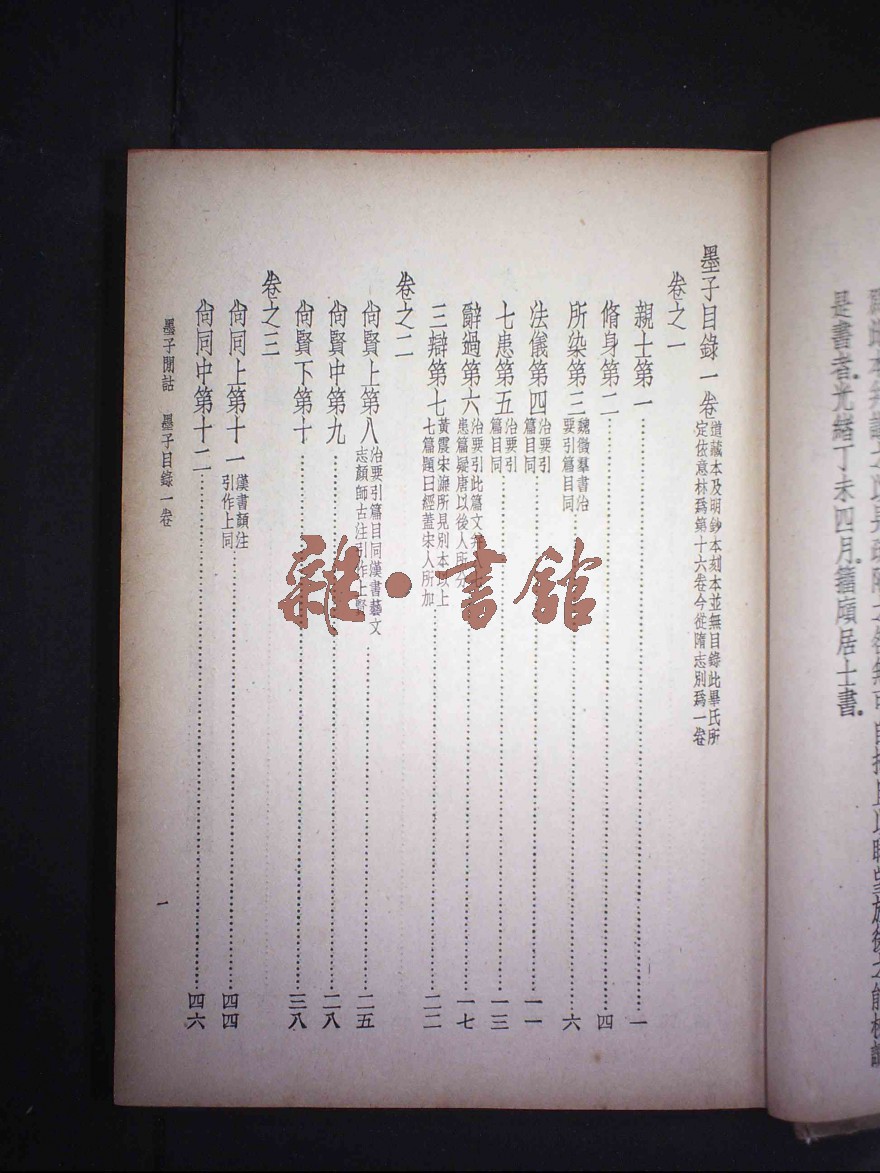 是書者光緒丁未四月籀廎居士書
墨子目錄一卷 道藏本及明鈔本刻本並無目錄此畢氏所
定依意林爲第十六卷今從隋志別爲一卷
卷之一
親士第一 一
脩身第二 四
所染第三 魏徵羣書治
要引篇目同 六
法儀第四 治要引
篇目同 一一
七患第五 治要引
篇目同 一三
辭過第六 治要引此篇文
患篇疑唐以後人所 一七
三辯第七 黃震宋濂所見別本以上
七篇題曰經蓋宋人所加 二二
卷之二
尙賢上第八 治要引篇目同漢書藝文
志顏師古注引作上賢 二五
尙賢中第九 二八
尙賢下第十 三八
卷之三
尙同上第十一 漢書顏注
引作上同 四四
尙同中第十二 四六
墨子閒詁 墨子目錄一卷
一
雜·書館